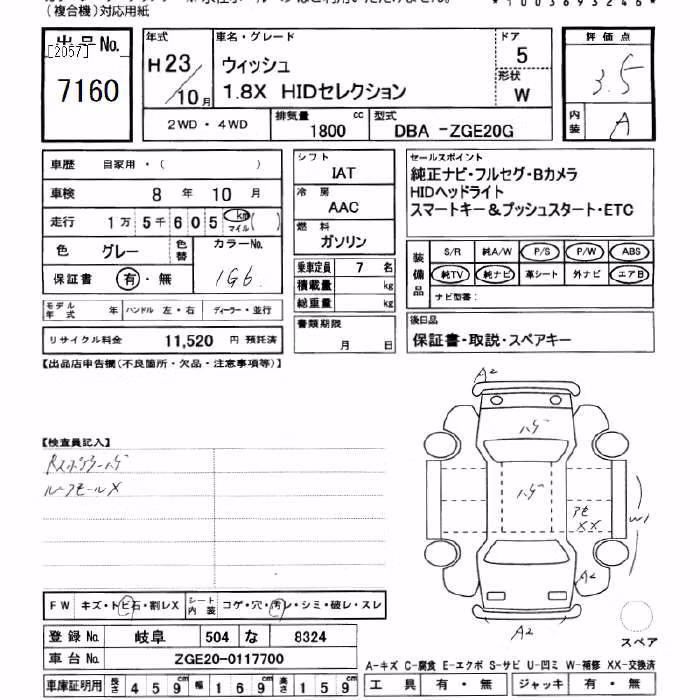 (複合機)対応用紙
*1003693246*
出品No.
[2057]
7160
年式
H23/10月
車名・グレード
ウィッシュ
1.8X HIDセレクション
ドア
5
形状
W
評価点
3.5
内装
A
2WD・4WD
排気量
1800 cc
型式
DBA -ZGE20G
車歴 自家用・( )
車検 8 年 10 月
走行 1万 5千 6 0 5 km マイル( )
色 グレー
色替
カラーNo.
1G6
保証書 有・無
モデル年式 年 ハンドル 左・右 ディーラー・並行
リサイクル料金 11,520 円 預託済
シフト
IAT
冷房
AAC
燃料
ガソリン
乗車定員 7 名
積載量 kg
総重量 kg
書類期限
月 日
セールスポイント
純正ナビ・フルセグ・Bカメラ
HIDヘッドライト
スマートキー&プッシュスタート・ETC
装備品
S/R 純A/W P/S P/W ABS
純TV 純ナビ 革シート 外ナビ エアB
ナビ型番:
後日品
保証書・取説・スペアキー
【出品店申告欄(不良箇所・欠品・注意事項等)】
【検査員記入】
Rスポイラーハゲ
ルーフモールX
A2
ハゲ
ハゲ
アセ
XX
W1
A2
A2
スペア
FW キズ・トビ石・割レX シート内装 コゲ・穴・汚レ・シミ・破レ・スレ
登録No. 岐阜 504 な 8324
車台No. ZGE20-0117700
車庫証明用 長さ 4 5 9cm 幅 1 6 9cm 高さ 1 5 9cm
A-キズ C-腐食 E-エクボ S-サビ U-凹ミ W-補修 XX-交換済
工具 有・無 ジャッキ 有・無